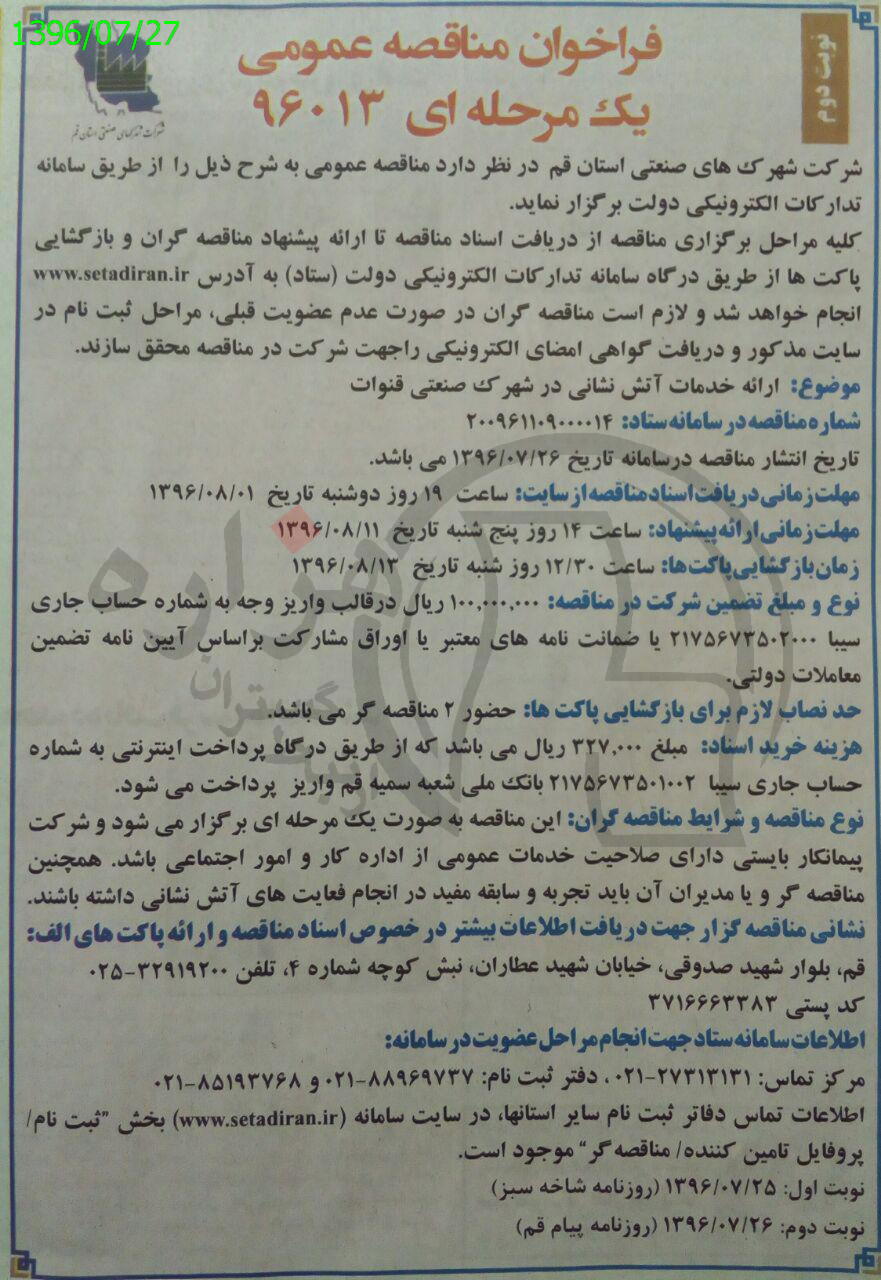 1396/07/27
نوبت دوم
فراخوان مناقصه عمومی
یک مرحله ای ۹۶۰۱۳
شرکت شهرکهای صنعتی استان قم
شرکت شهرک های صنعتی استان قم در نظر دارد مناقصه عمومی به شرح ذیل را از طریق سامانه
تدارکات الکترونیکی دولت برگزار نماید.
کلیه مراحل برگزاری مناقصه از دریافت اسناد مناقصه تا ارائه پیشنهاد مناقصه گران و بازگشایی
پاکت ها از طریق درگاه سامانه تدارکات الکترونیکی دولت (ستاد) به آدرس www.setadiran.ir
انجام خواهد شد و لازم است مناقصه گران در صورت عدم عضویت قبلی، مراحل ثبت نام در
سایت مذکور و دریافت گواهی امضای الکترونیکی راجهت شرکت در مناقصه محقق سازند.
موضوع: ارائه خدمات آتش نشانی در شهرک صنعتی قنوات
شماره مناقصه در سامانه ستاد: ۲۰۰۹۶۱۱۰۹۰۰۰۰۱۴
تاریخ انتشار مناقصه درسامانه تاریخ ۱۳۹۶/۰۷/۲۶ می باشد.
مهلت زمانی دریافت اسناد مناقصه از سایت: ساعت ۱۹ روز دوشنبه تاریخ ۱۳۹۶/۰۸/۰۱
مهلت زمانی ارائه پیشنهاد: ساعت ۱۴ روز پنج شنبه تاریخ ۱۳۹۶/۰۸/۱۱
زمان بازگشایی پاکت ها: ساعت ۱۲/۳۰ روز شنبه تاریخ ۱۳۹۶/۰۸/۱۳
نوع و مبلغ تضمین شرکت در مناقصه: ۱۰۰,۰۰۰,۰۰۰ ریال درقالب واریز وجه به شماره حساب جاری
سیبا ۲۱۷۵۶۷۳۵۰۲۰۰۰ یا ضمانت نامه های معتبر یا اوراق مشارکت براساس آیین نامه تضمین
معاملات دولتی.
حد نصاب لازم برای بازگشایی پاکت ها: حضور ۲ مناقصه گر می باشد.
هزینه خرید اسناد: مبلغ ۳۲۷,۰۰۰ ریال می باشد که از طریق درگاه پرداخت اینترنتی به شماره
حساب جاری سیبا ۲۱۷۵۶۷۳۵۰۱۰۰۲ بانک ملی شعبه سمیه قم واریز پرداخت می شود.
نوع مناقصه و شرایط مناقصه گران: این مناقصه به صورت یک مرحله ای برگزار می شود و شرکت
پیمانکار بایستی دارای صلاحیت خدمات عمومی از اداره کار و امور اجتماعی باشد. همچنین
مناقصه گر و یا مدیران آن باید تجربه و سابقه مفید در انجام فعایت های آتش نشانی داشته باشند.
نشانی مناقصه گزار جهت دریافت اطلاعات بیشتر در خصوص اسناد مناقصه و ارائه پاکت های الف:
قم، بلوار شهید صدوقی، خیابان شهید عطاران، نبش کوچه شماره ۴، تلفن ۳۲۹۱۹۲۰۰-۰۲۵
کد پستی ۳۷۱۶۶۶۳۳۸۳
اطلاعات سامانه ستاد جهت انجام مراحل عضویت در سامانه:
مرکز تماس: ۲۷۳۱۳۱۳۱-۰۲۱، دفتر ثبت نام: ۸۸۹۶۹۷۳۷-۰۲۱ و ۸۵۱۹۳۷۶۸-۰۲۱
اطلاعات تماس دفاتر ثبت نام سایر استانها، در سایت سامانه (www.setadiran.ir) بخش "ثبت نام/
پروفایل تامین کننده/ مناقصه گر" موجود است.
نوبت اول: ۱۳۹۶/۰۷/۲۵ (روزنامه شاخه سبز)
نوبت دوم: ۱۳۹۶/۰۷/۲۶ (روزنامه پیام قم)